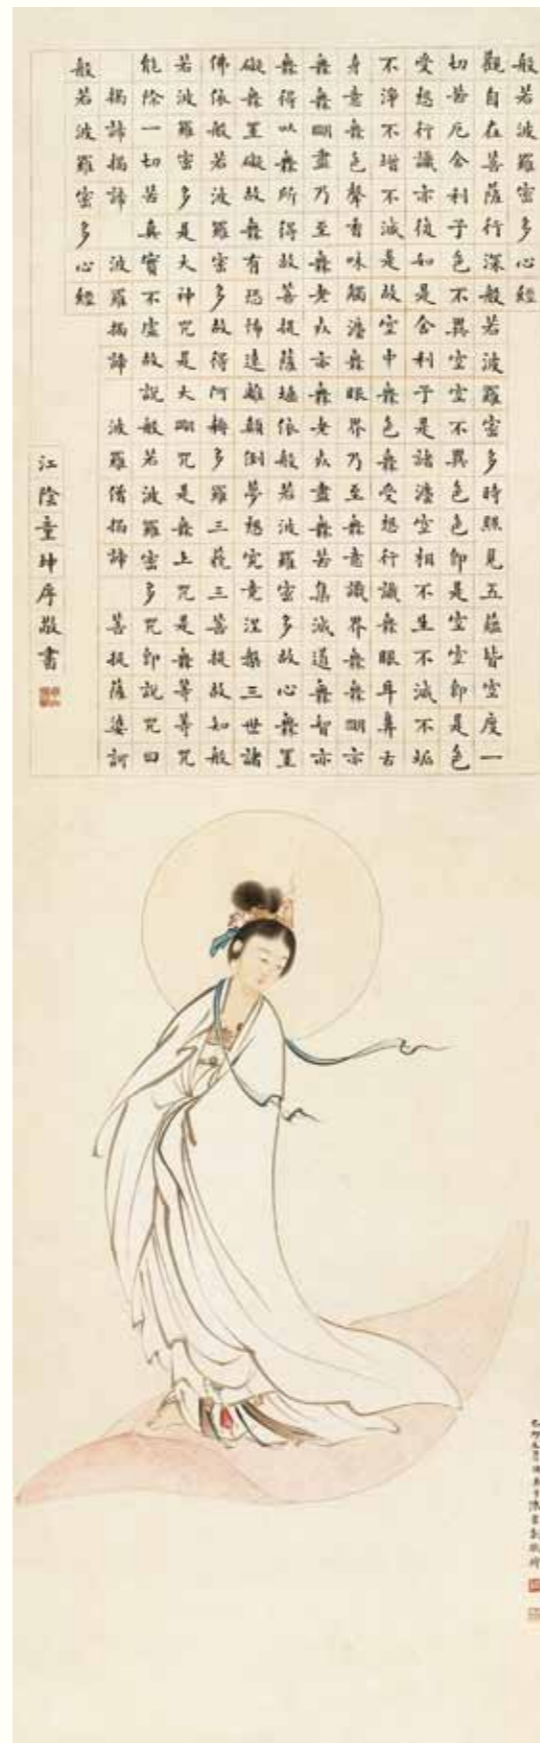 般若波羅密多心經
觀自在菩薩行深般若波羅密多時照見五蘊皆空度一
切苦厄舍利子色不異空空不異色色即是空空即是色
受想行識亦復如是舍利子是諸灋空相不生不滅不垢
不淨不增不減是故空中無色無受想行識無眼耳鼻舌
身意無色聲香味觸灋無眼界乃至無意識界無無朙亦
無無朙盡乃至無老死亦無老死盡無苦集滅道無智亦
無得以無所得故菩提薩埵依般若波羅密多故心無罣
礙無罣礙故無有恐怖遠離顛倒夢想究竟涅槃三世諸
佛依般若波羅密多故得阿耨多羅三藐三菩提故知般
若波羅密多是大神咒是大朙咒是無上咒是無等等咒
能除一切苦真實不虛故說般若波羅密多咒即說咒曰
揭諦揭諦　波羅揭諦　波羅僧揭諦　菩提薩婆訶
般若波羅密多心經
江陰童序敬書